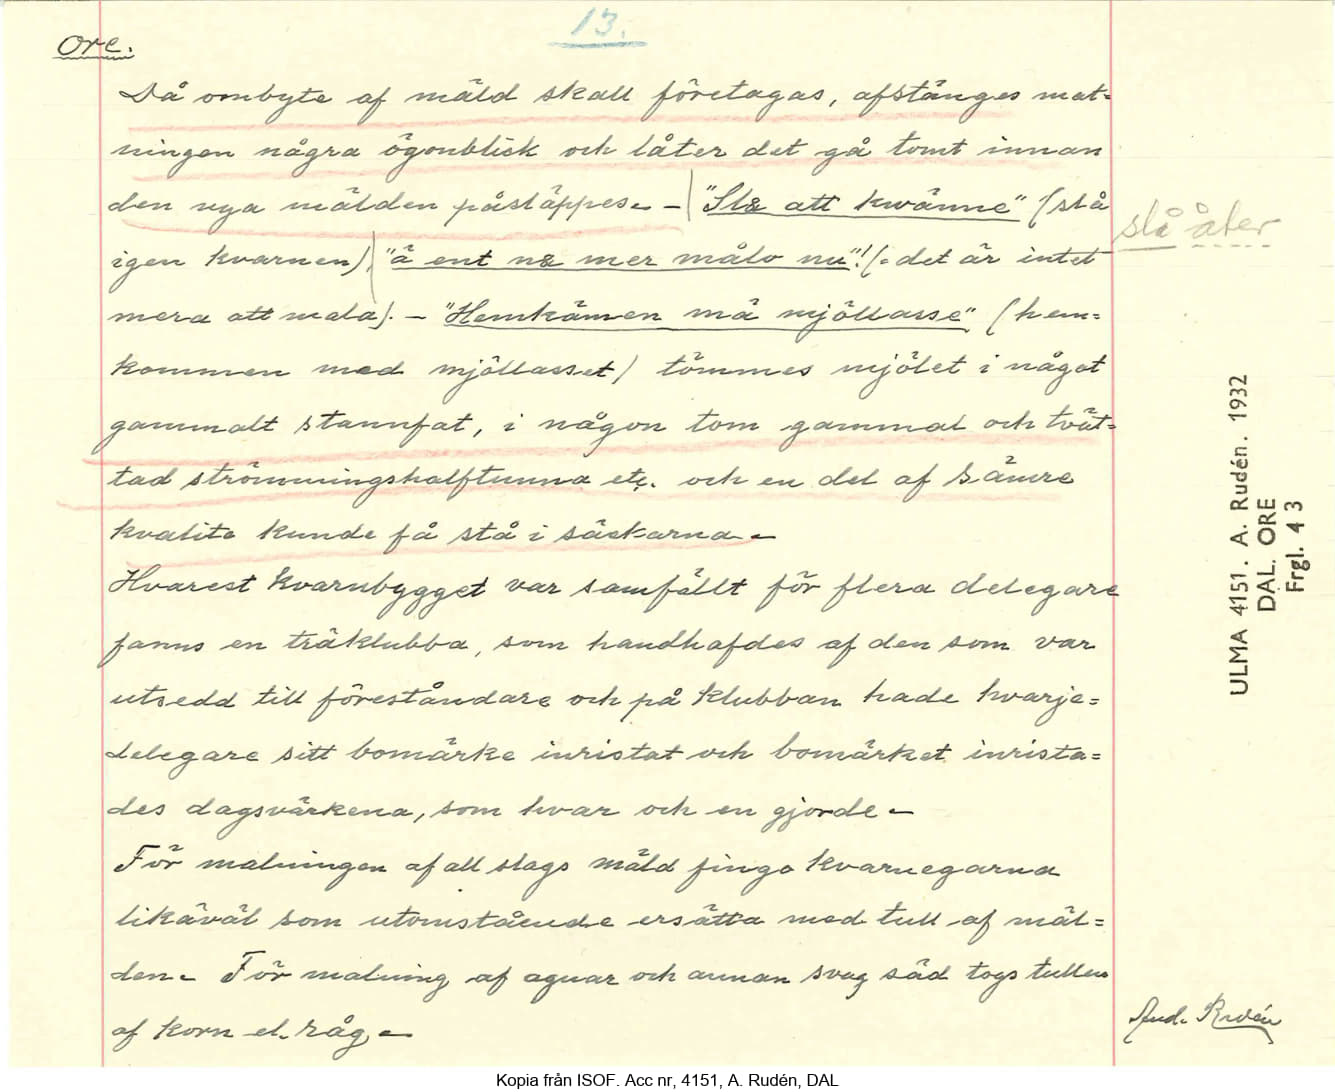 13.
Ore.
Då ombyte af mäld skall företagas, afstänges mat-
ningen några ögonblick och låter det gå tomt innan
den nya mälden påsläppes. - "Slæ att kwänne" (slå
slå åter
igen kvarnen), "ä ent næ mer målo nu"! (= det är intet
mera att mala). - "Hemkämen mä mjöllasse" (hem-
kommen med mjöllasset) tömmes mjölet i något
gammalt stannfat, i någon tom gammal och tvät-
tad strömmingshalftunna etc. och en del af sämre
kvalite kunde få stå i säckarna.
Hvarest kvarnbygget var samfällt för flera delegare
fanns en träklubba, som handhafdes af den som var
utsedd till föreståndare och på klubban hade hvarje-
delegare sitt bomärke inristat och bomärket inrista-
des dagsvärkena, som hvar och en gjorde.
För malningen af all slags mäld fingo kvarnegarna
likäväl som utomstående ersätta med tull af mäl-
den. För malning af agnar och annan svag säd togs tullen
af korn el. råg.
And. Rudén
ULMA 4151. A. Rudén. 1932
DAL. ORE
Frgl. 43
Kopia från ISOF. Acc nr, 4151, A. Rudén, DAL